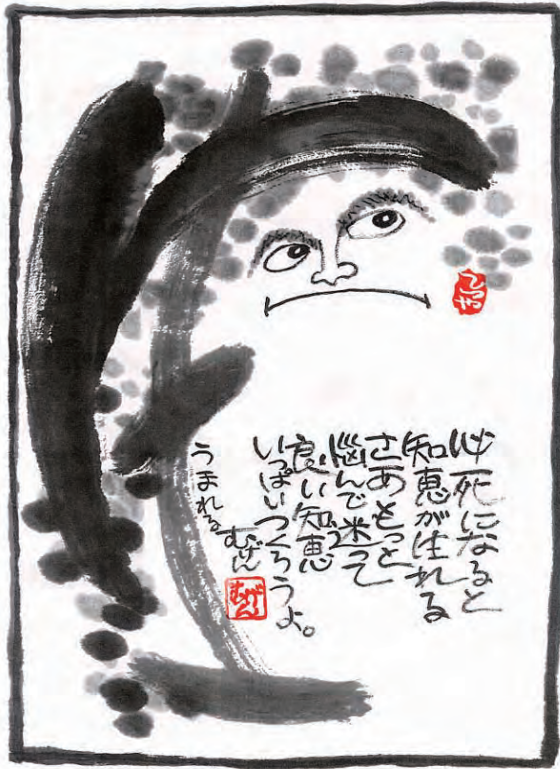 必死になると
知恵が生れる
さあもっと
悩んで迷って
良い知恵
いっぱいつくろうよ。
うまれる
むげん
むげん